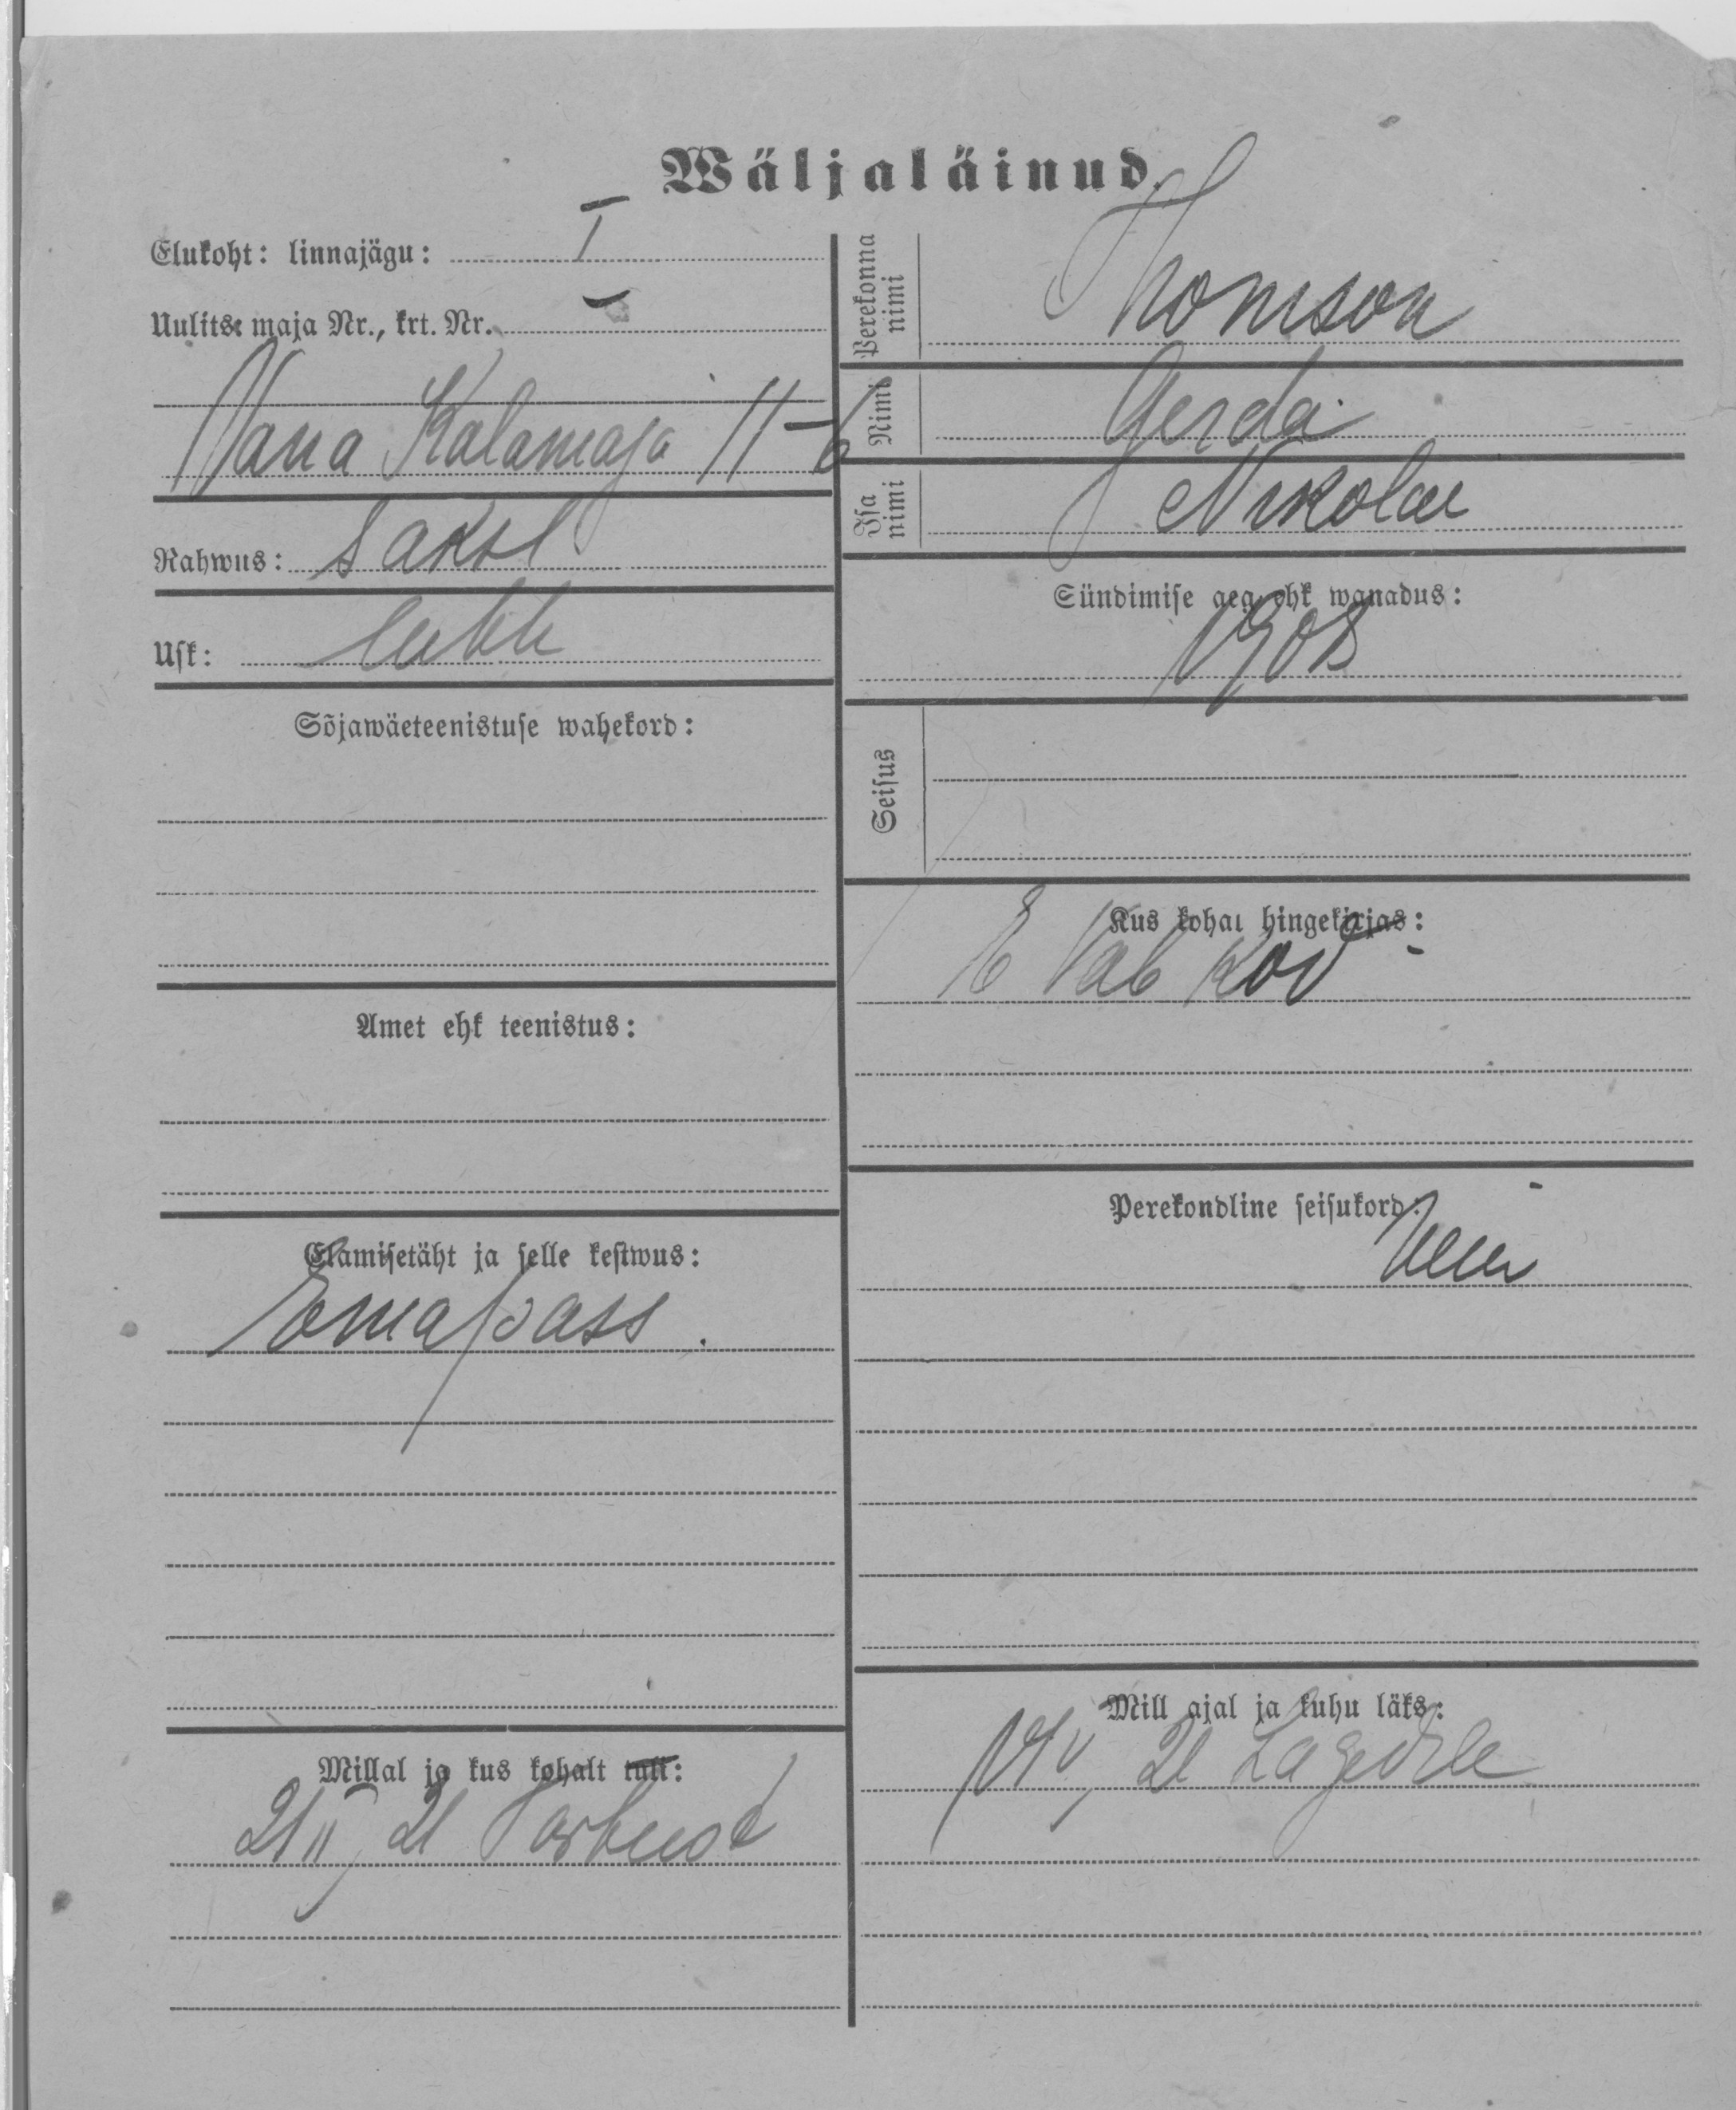 Wäljaläinud.
Elukoht: linnajägu: I
Uulits: maja Nr., krt. Nr.
Vana Kalamaja 11-6
Rahwus: Saksl
Usk: lutth
Sõjawäeteenistuse wahekord:
Amet ehk teenistus:
Elamisetäht ja selle kestwus:
Omapass.
Millal ja kus kohalt tuli:
21 II, 21
Perekonna nimi Thomson
Nimi Gerda
Isa nimi Nikolai
Sündimise aeg ehk wanadus:
1908
Seisus
Kus kohal hingekirjas:
E Vab
Perekondline seisukord:
Mill ajal ja kuhu läks:
21 Lagedile